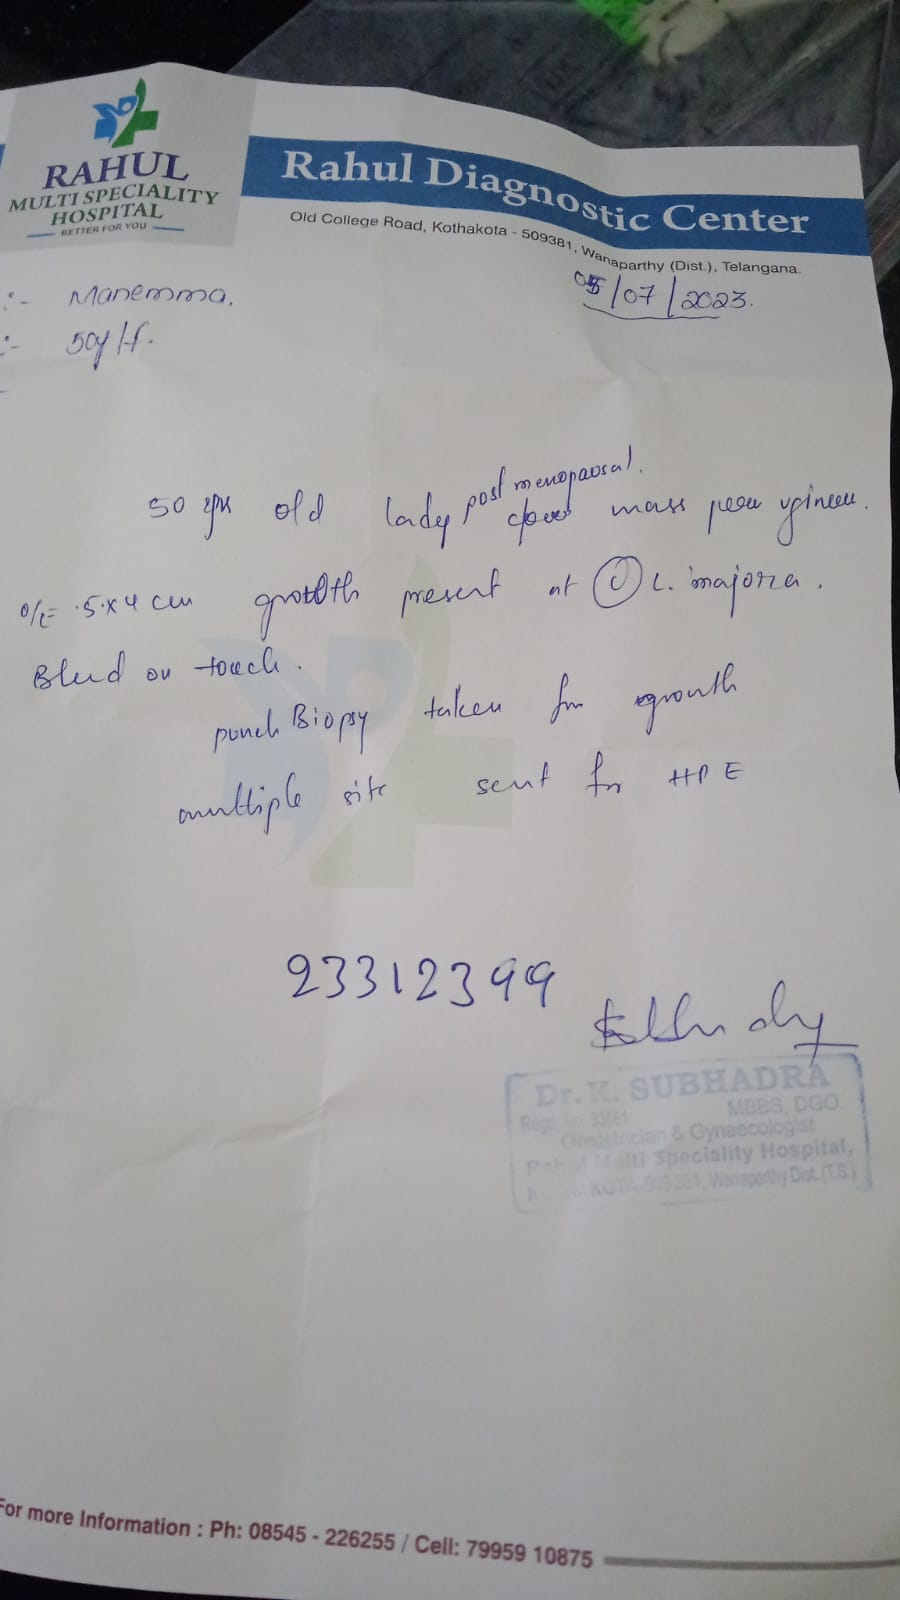 RAHUL
MULTI SPECIALITY
HOSPITAL
BETTER FOR YOU
Rahul Diagnostic Center
Old College Road, Kothakota - 509381, Wanaparthy (Dist.), Telangana.
:- Manemma,
05/07/2023.
:- 50y/f.
post menopausal.
50 yrs old lady mass per
O/E .5x4 cm growth present at L. majora.
Bleed on touch.
punch Biopsy taken for growth
multiple site sent for HPE
23312399
Dr. K. SUBHADRA
MBBS, DGO.
Regd. No.
Obstetrician & Gynaecologist
Rahul Multi Speciality Hospital,
KOTA-509381, Wanaparthy Dist. (T.S.)
For more Information : Ph: 08545 - 226255 / Cell: 79959 10875